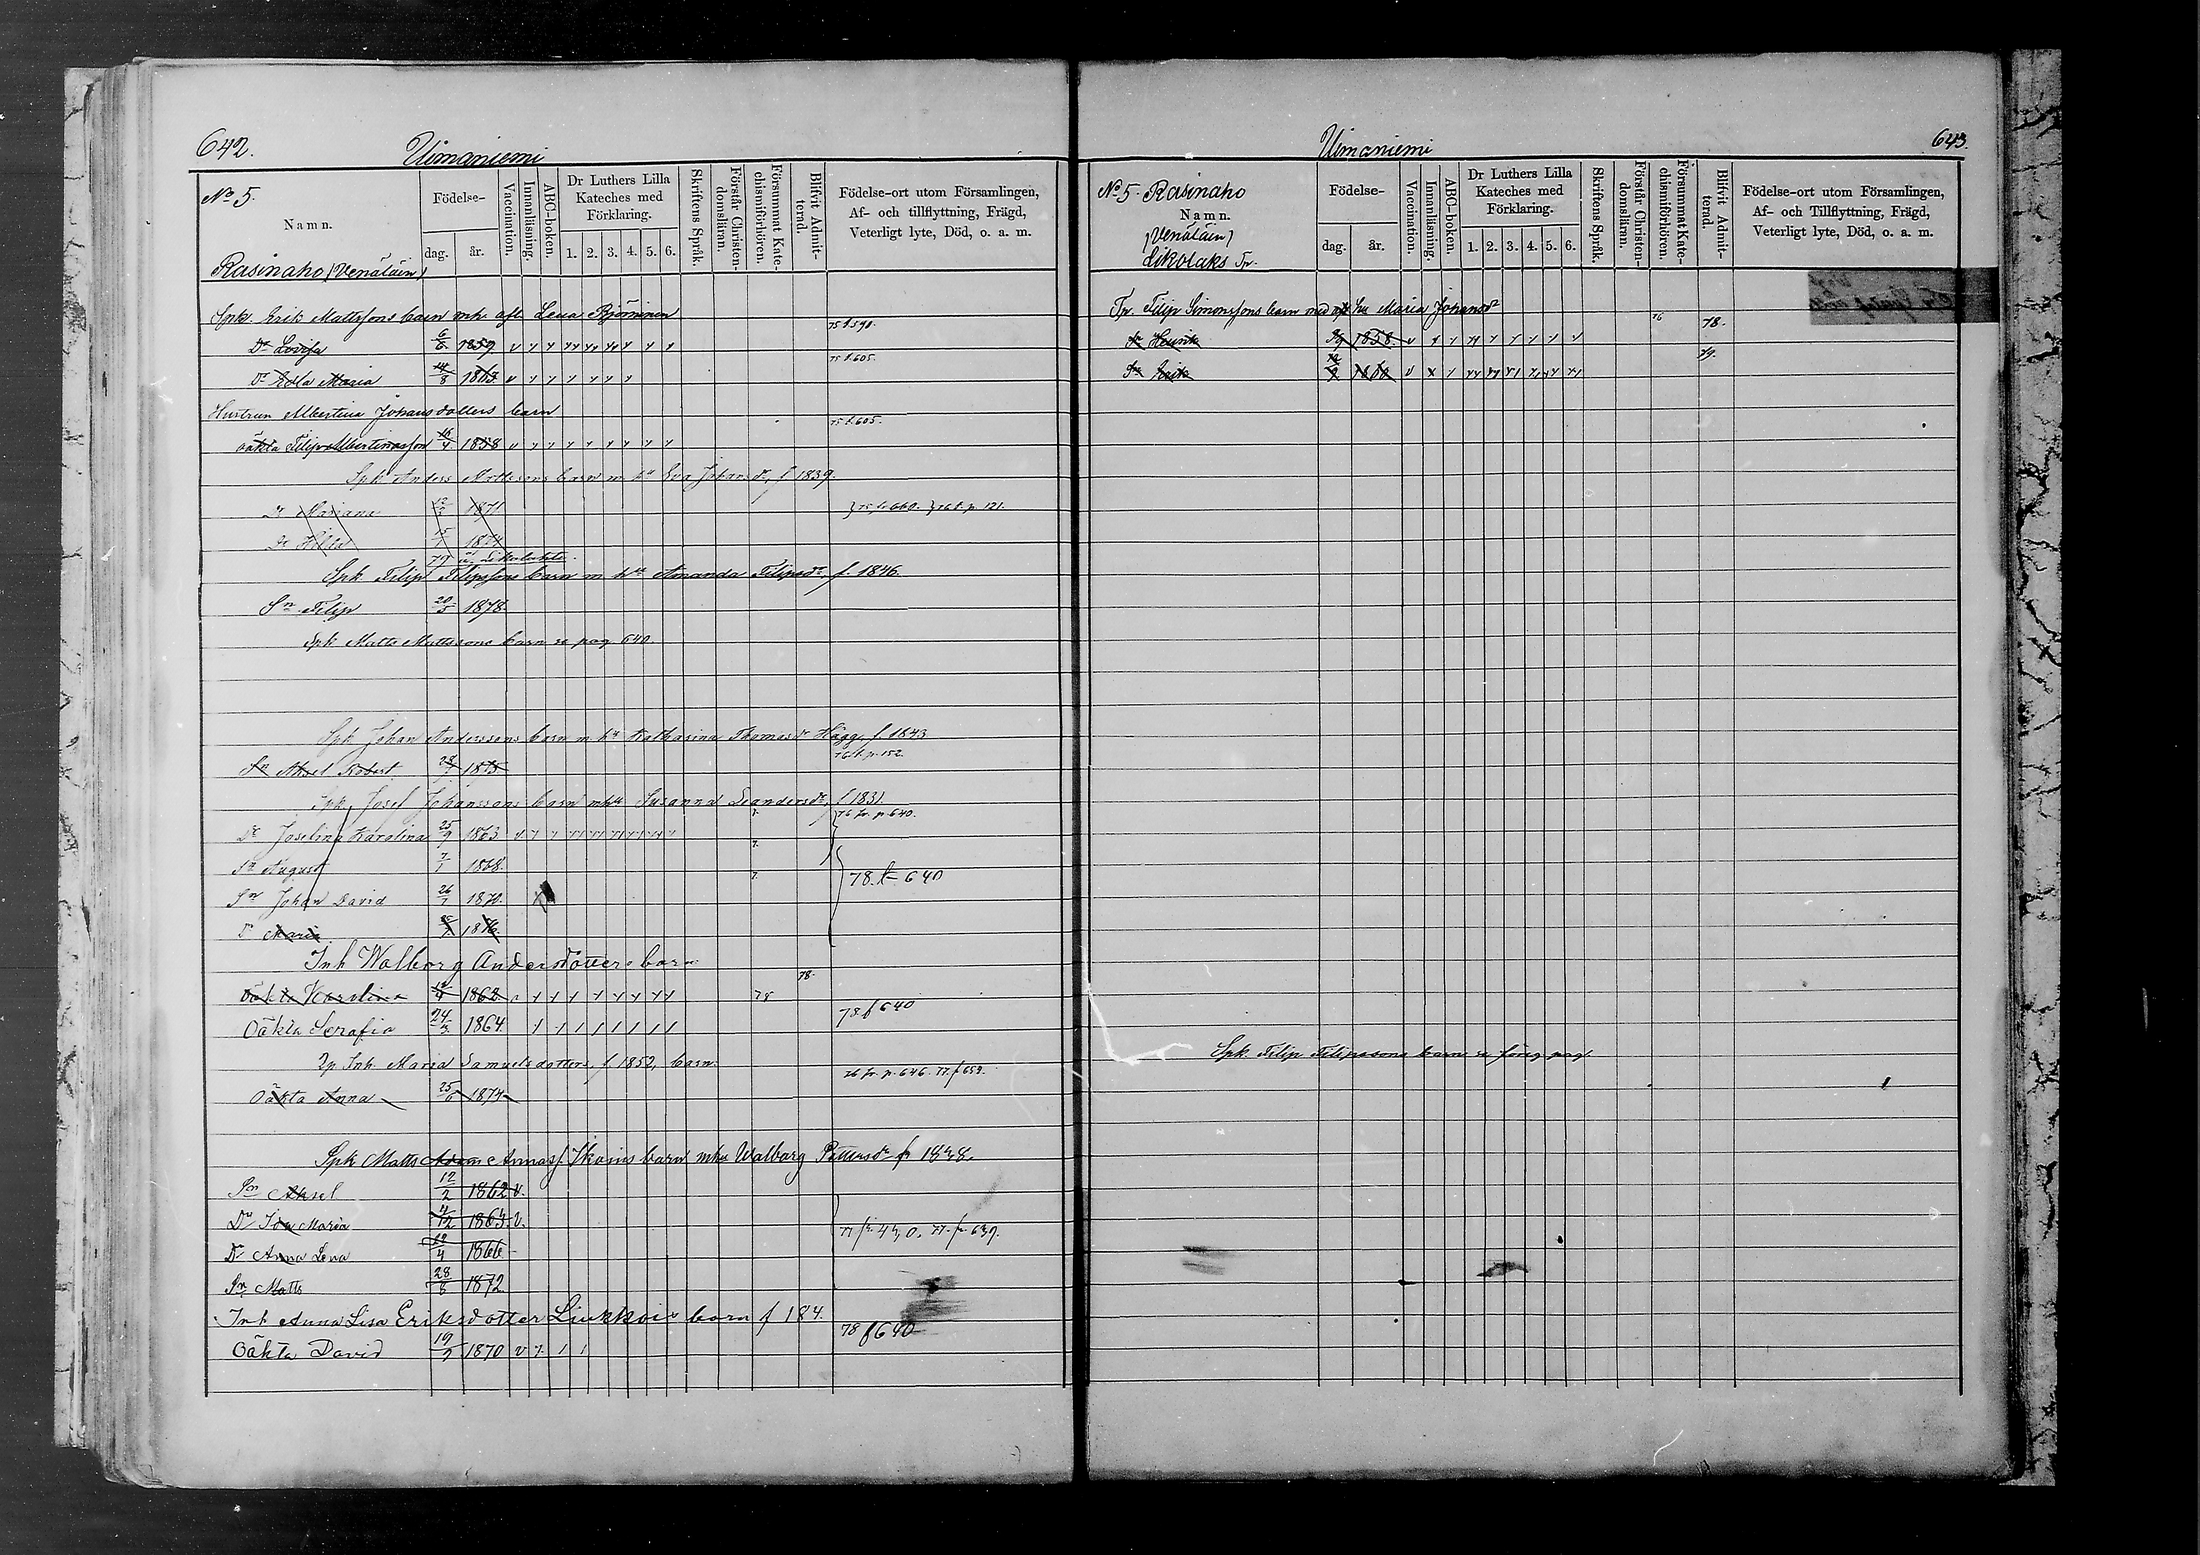 642. Uimaniemi
No 5.
Namn.
Rasinaho (Venäläin)
Födelse-
dag. år.
Vaccination.
Innanläsning.
ABC-boken.
Dr Luthers Lilla Kateches med Förklaring.
1. 2. 3. 4. 5. 6.
Skriftens Språk.
Förstår Christendomsläran.
Försummat Katechismiförhören.
Blifvit Admitterad.
Födelse-ort utom Församlingen,
Af- och tillflyttning, Frägd,
Veterligt lyte, Död, o. a. m.
Spk. Erik Mattssons barn mh afl. Lena Björninen
Dr Lovisa 6/6 1859. 75 t. 590.
Dr Edla Maria 14/8 1863 75 t. 605.
Hustrun Albertina Johansdotters barn
oäkta Filip Albertinasson 16/4 1858 75 t. 605.
Spk Anders Mattssons barn m. hu Eva Johansdr, f 1839.
Dr Mariana 1871 75 fr 660. 76 t. p. 121.
Dr Hilla 1874
Spk Filip Filipssons barn m hu Amanda Filipsdr, f. 1846.
Sn Filip 20/5 1878.
Spk Matts Mattssons barn se pag 640
Spk Johan Anderssons barn m. hu Katharina Thomasdr Hägg, f 1843
Sn Aksel Robert 1875 76 t. p. 152
Spk Josef Johanssons barn mhu Susanna Leandersdr, f 1831.
Dr Joselina Karolina 25/9 1863 76 fr. p. 640.
Sn August 7/1 1868.
Sn Johan David 26/7 1870. 78. fr 640
Dr Maria 1876
Inh Walborg Andersdotters barn 78.
Oäkta Karolina 12/4 1862. 78
Oäkta Serafia 24/3 1864. 78 f 640
Inh. Maria Samuelsdotters, f. 1852, barn.
Oäkta Anna 25/6 1874 76 fr. p. 646. 77. f 659.
Spk Matts Annasf. Ikonis barn mhu Walborg Pettersdr fr 1838.
Sn Aksel 12/2 1862 v.
Dr Ida Maria 4/12 1863. v.
Dr Anna Lena 12/4 1866
Sn Matts 28/8 1872
Inh Anna Lisa Eriksdotter Liukkois barn f 184.
Oäkta David 19/7 1870 78 f 640
Uimaniemi 643.
No 5. Rasinaho
Namn.
(Venäläin)
Likolaks Tp.
Födelse-
dag. år.
Vaccination.
Innanläsning.
ABC-boken.
Dr Luthers Lilla Kateches med Förklaring.
1. 2. 3. 4. 5. 6.
Skriftens Språk.
Förstår Christendomsläran.
Försummat Katechismiförhören.
Blifvit Admitterad.
Födelse-ort utom Församlingen,
Af- och Tillflyttning, Frägd,
Veterligt lyte, Död, o. a. m.
Tp. Filip Simonssons barn med afl hu Maria Johansdr
Sn Henrik 1858. 76 78.
Sn Erik 1860 79.
Spk. Filip Filipssons barn se föreg pag.